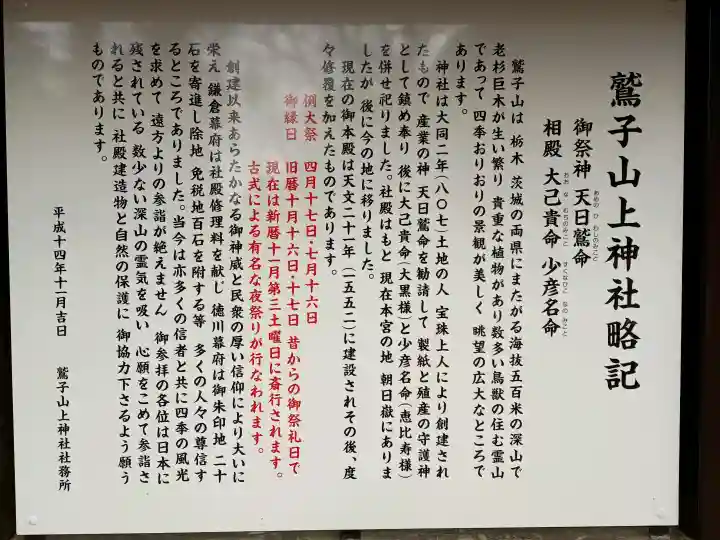 鷲子山上神社略記
御祭神 天日鷲命
あめのひわしのみこと
相殿 大己貴命 少彦名命
おおなむちのみこと すくなひこなのみこと
鷲子山は 栃木 茨城の両県にまたがる海抜五百米の深山で
老杉巨木が生い繁り 貴重な植物があり数多い鳥獣の住む霊山
であって 四季おりおりの景観が美しく 眺望の広大なところで
あります。
神社は大同二年(八〇七)土地の人 宝珠上人により創建され
たもので 産業の神 天日鷲命を勧請して 製紙と殖産の守護神
として鎮め奉り 後に大己貴命(大黒様)と少彦名命(恵比寿様)
を併せ祀りました。社殿はもと 現在本宮の地 朝日嶽にありま
したが 後に今の地に移りました。
現在の御本殿は天文二十一年(一五五二)に建設されその後、度
々修覆を加えたものであります。
例大祭 四月十七日・七月十六日
御縁日 旧暦十月十六日・十七日 昔からの御祭礼日で
現在は新暦十一月第三土曜日に斎行されます。
古式による有名な夜祭りが行なわれます。
創建以来あらたかなる御神威と民衆の厚い信仰により大いに
栄え 鎌倉幕府は社殿修理料を献じ 徳川幕府は御朱印地 二十
石を寄進し除地 免税地百石を附する等 多くの人々の尊信す
るところでありました。当今は亦多くの信者と共に四季の風光
を求めて 遠方よりの参詣が絶えません 御参拝の各位は日本に
残されている 数少ない深山の霊気を吸い 心願をこめて参詣さ
れると共に 社殿建造物と自然の保護に 御協力下さるよう願う
ものであります。
平成十四年十一月吉日 鷲子山上神社社務所